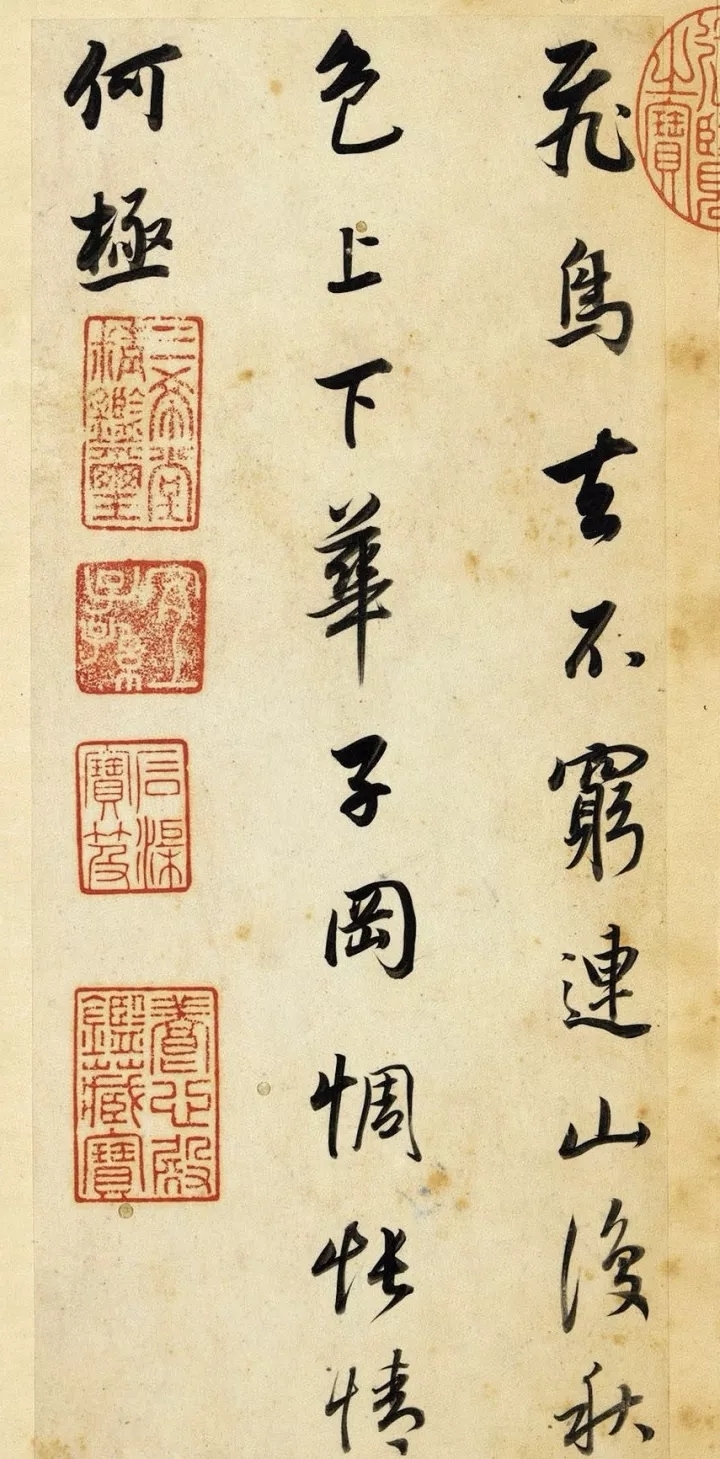 飛鳥去不窮連山復秋
色上下華子岡惆悵情
何極
三希堂精鑑璽
宜子孫
石渠寶笈
養心殿鑑藏寶